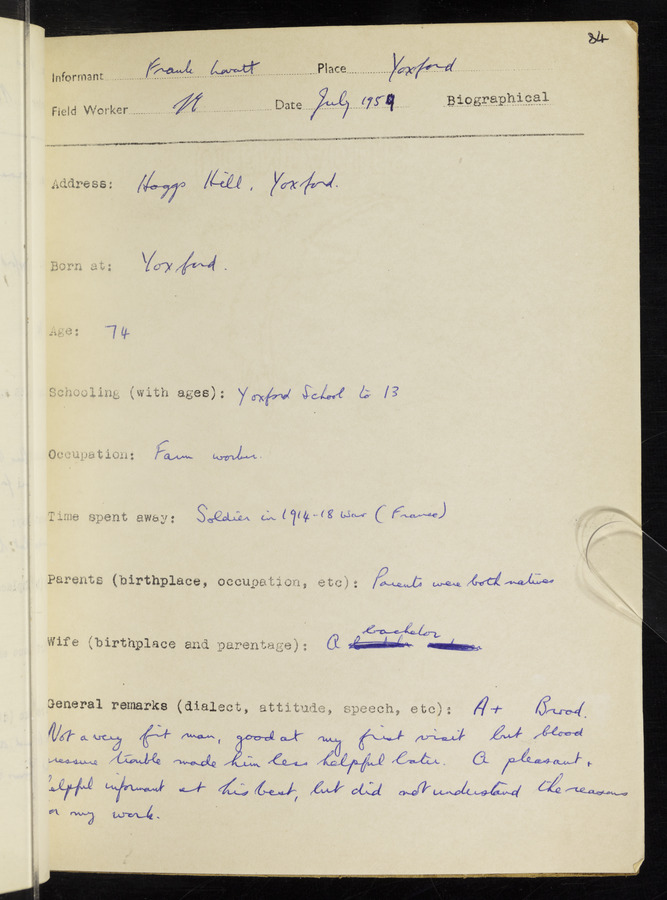 84
Informant Frank Lovatt Place Yoxford
Field Worker Date July 1959 Biographical
Address: Hoggs Hill, Yoxford.
Born at: Yoxford.
Age: 74
Schooling (with ages): Yoxford School to 13
Occupation: Farm worker.
Time spent away: Soldier in 1914-18 war (France)
Parents (birthplace, occupation, etc): Parents were both natives
Wife (birthplace and parentage): A bachelor
General remarks (dialect, attitude, speech, etc): A+ Broad.
Not a very fit man, good at my first visit but blood
ressure trouble made him less helpful later. A pleasant +
elpful informant at his best, but did not understand the reasons
my work.